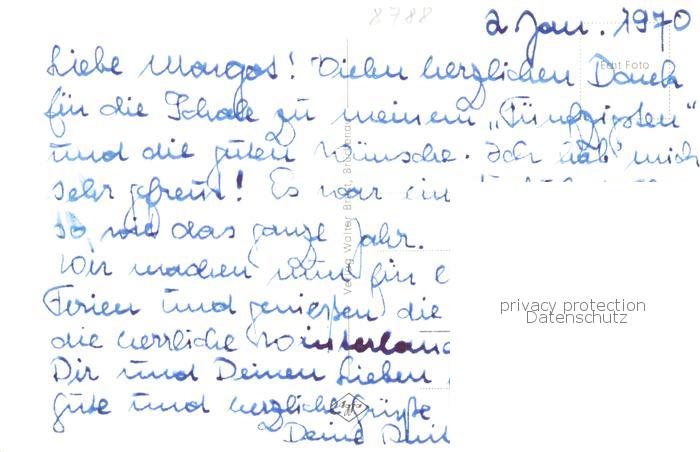 8788
2 Jan. 1970
Echt Foto
Liebe Margos! Vielen herzlichen Dank
für die Schale zu meinem „Fünfzigsten"
und die guten Wünsche. Ich hab' mich
sehr gefreut! Es war ein
so wie das ganze Jahr.
Wir machen nun für
Ferien und genießen die
die herrliche Winterland
Dir und Deinen Lieben
gute und herzliche Grüße
Deine
Verlag Walter
privacy protection
Datenschutz